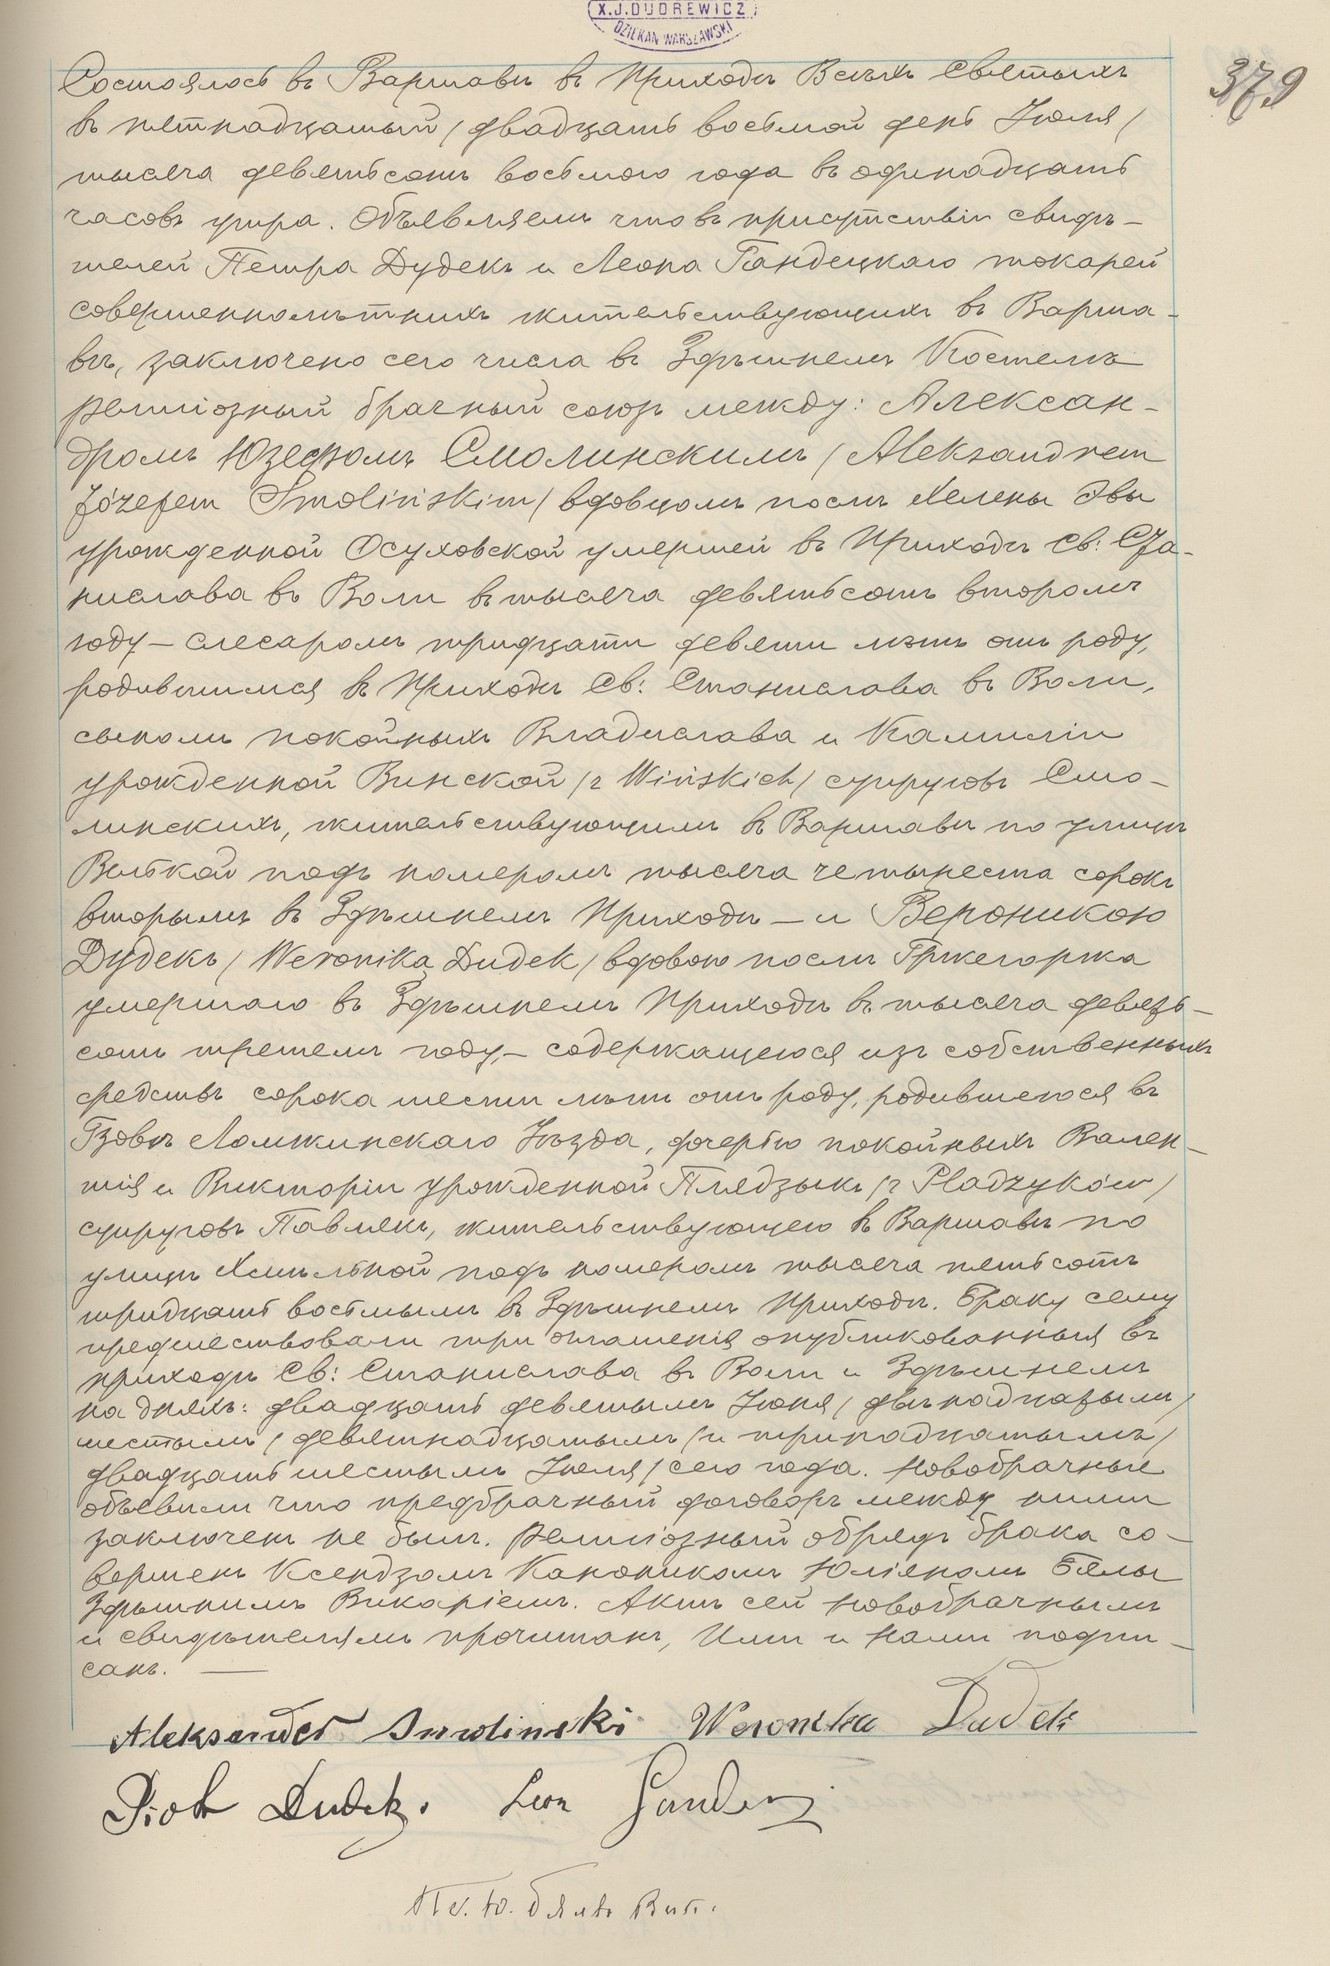 X.J.DUDREWICZ
DZIEKAN WARSZAWSKI
379
Состоялось въ Варшавѣ въ Приходѣ Всѣхъ Святыхъ
въ пятнадцатый / двадцать восьмой день Іюля /
тысяча девятьсотъ восьмого года въ одинадцать
часовъ утра. Объявляемъ что въ присутствіи свидѣ-
телей Петра Дудекъ и Леона Гандецкаго токарей
совершеннолѣтнихъ жительствующихъ въ Варша-
вѣ, заключено сего числа въ Здѣшнемъ Костелѣ
религіозный брачный союзъ между: Алексан-
дромъ Юзефомъ Смолинскимъ / Aleksandrem
Józefem Smolińskim / вдовцомъ послѣ Хелены Эвы
урожденной Осуховской умершей въ Приходѣ Св: Ста-
нислава въ Воли въ тысяча девятьсотъ второмъ
году – слесаромъ тридцати девяти лѣтъ отъ роду,
родившимся въ Приходѣ Св: Станислава въ Воли,
сыномъ покойныхъ Владислава и Камиліи
урожденной Винской / z Wińskich / супруговъ Смо-
линскихъ, жительствующимъ въ Варшавѣ по улицѣ
подъ номеромъ тысяча четыреста сорокъ
вторымъ въ Здѣшнемъ Приходѣ – и Вероникою
Дудекъ / Weroniką Dudek / вдовою послѣ Гржегоржа
умершаго въ Здѣшнемъ Приходѣ въ тысяча девять-
сотъ третемъ году, – содержащеюся изъ собственныхъ
средствъ сорока шести лѣтъ отъ роду, родившеюся въ
Ломжинскаго Уѣзда, дочерью покойныхъ Вален-
тія и Викторіи урожденной Плядзыкъ / z Pladzyków /
супруговъ Павлякъ, жительствующею въ Варшавѣ по
улицѣ Хмѣльной подъ номеромъ тысяча пятьсотъ
тридцать восьмымъ въ Здѣшнемъ Приходѣ. Браку сему
предшествовали три оглашенія опубликованныя въ
приходѣ Св: Станислава въ Воли и Здѣшнемъ
на дняхъ: двадцать девятымъ Іюня / двѣнадцатымъ /
шестымъ / девятнадцатымъ / и тринадцатымъ /
двадцать шестымъ Іюля / сего года. Новобрачные
объявили что предбрачный договоръ между ними
заключенъ не былъ. Религіозный обрядъ брака со-
вершенъ Ксендзомъ Каноникомъ Юліяномъ Бялы
Здѣшнимъ Викаріемъ. Актъ сей Новобрачнымъ
и свидѣтелямъ прочитанъ, Ими и Нами подпи-
санъ. –
Aleksander Smolinski Weronika Dudek
Piotr Dudek. Leon
Ю. Бялы Вик.